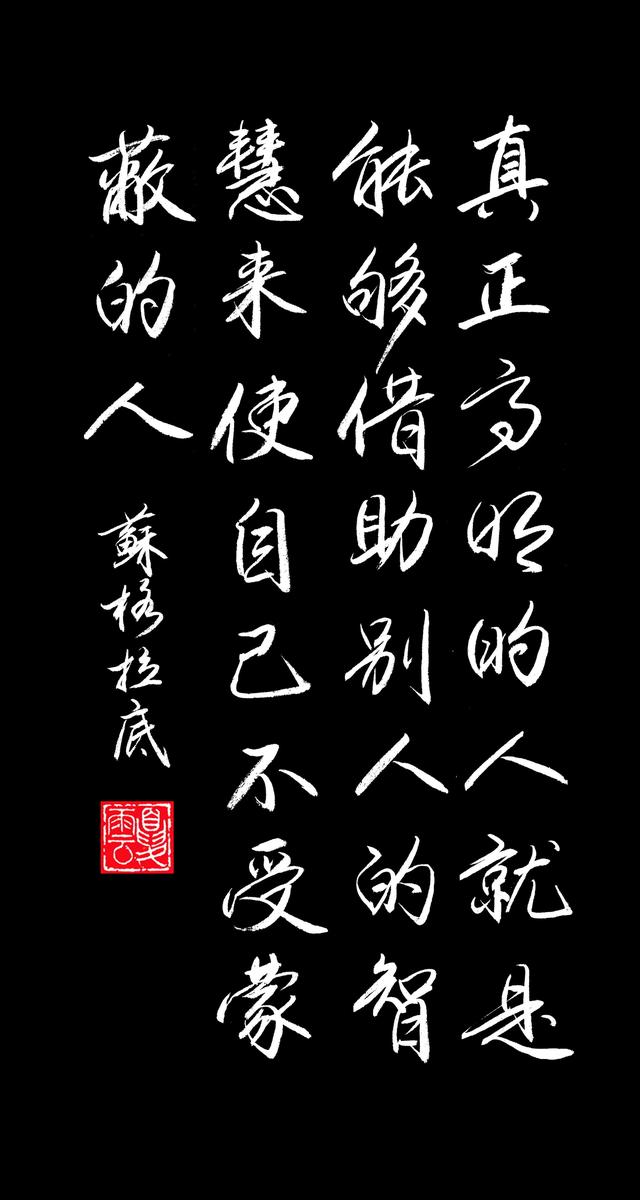 真正高明的人就是
能够借助别人的智
慧来使自己不受蒙
蔽的人
蘇格拉底
夏雲